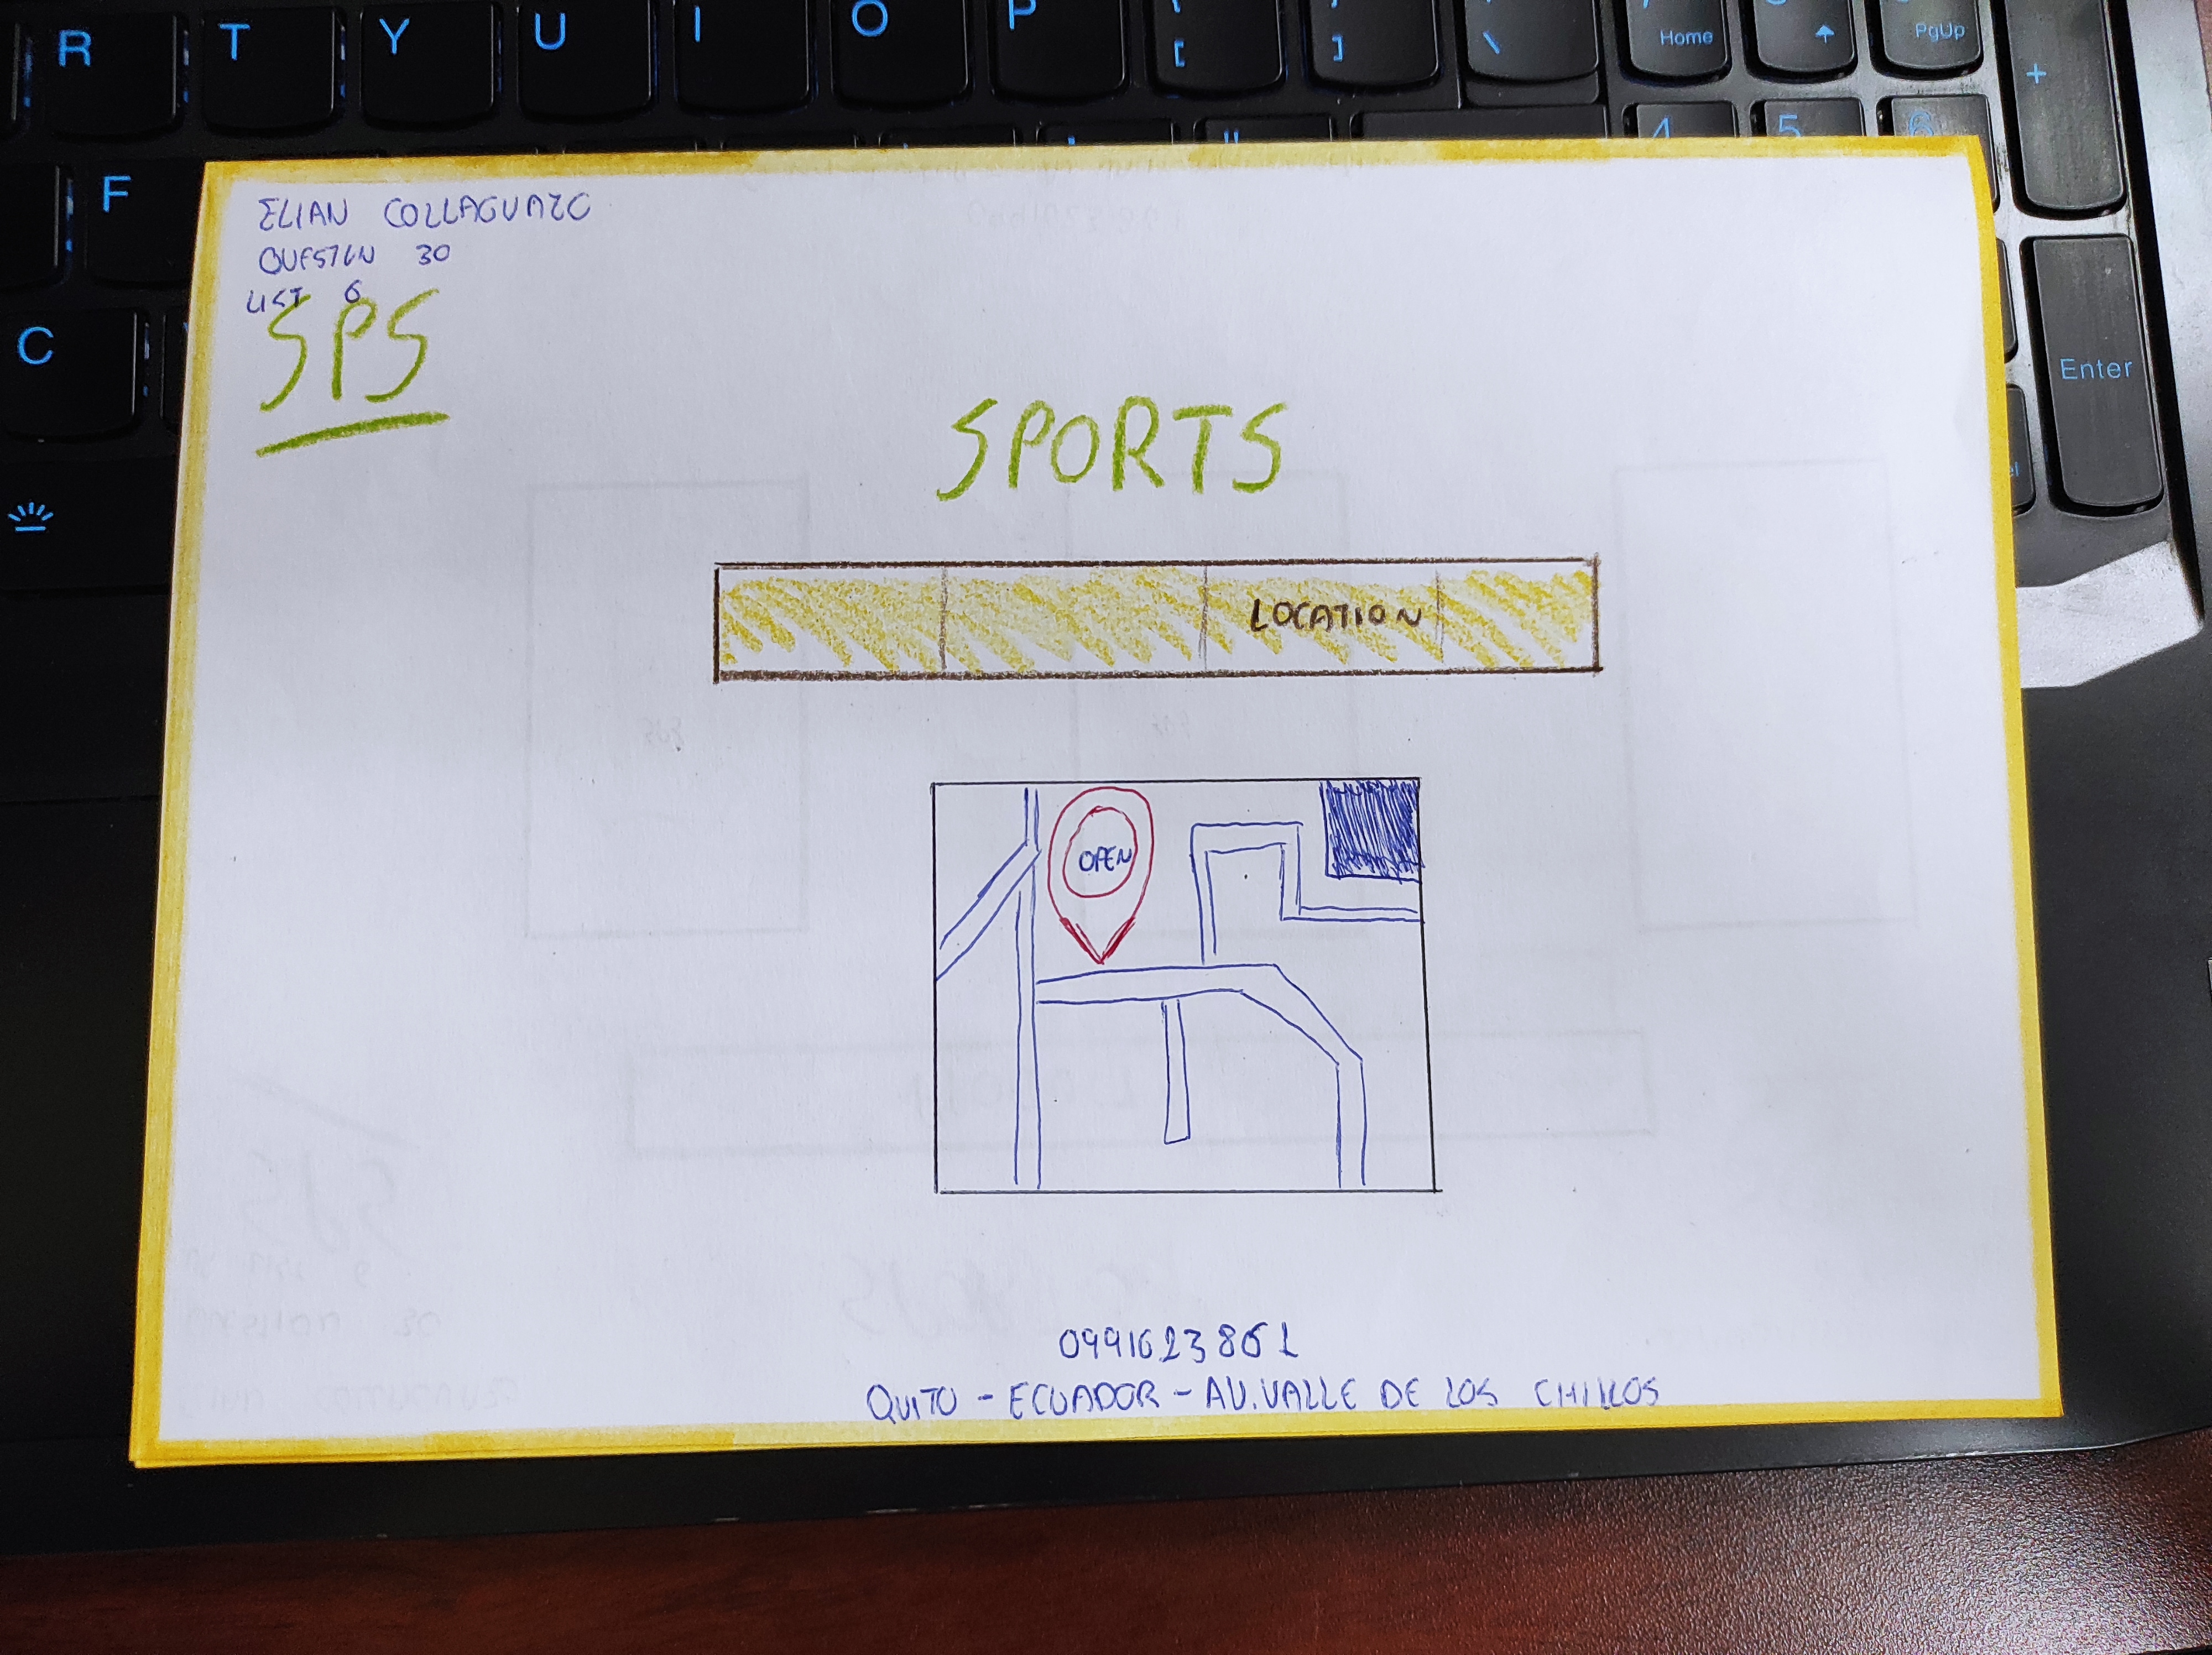 R T Y U I O P [ ] \ Home PgUp +
F 4 5 6
ELIAN COLLAGUAZO
QUESTION 30
LIST 6
SPS
C
Enter
SPORTS
LOCATION
OPEN
0991623861
QUITO - ECUADOR - AV. VALLE DE LOS CHILLOS